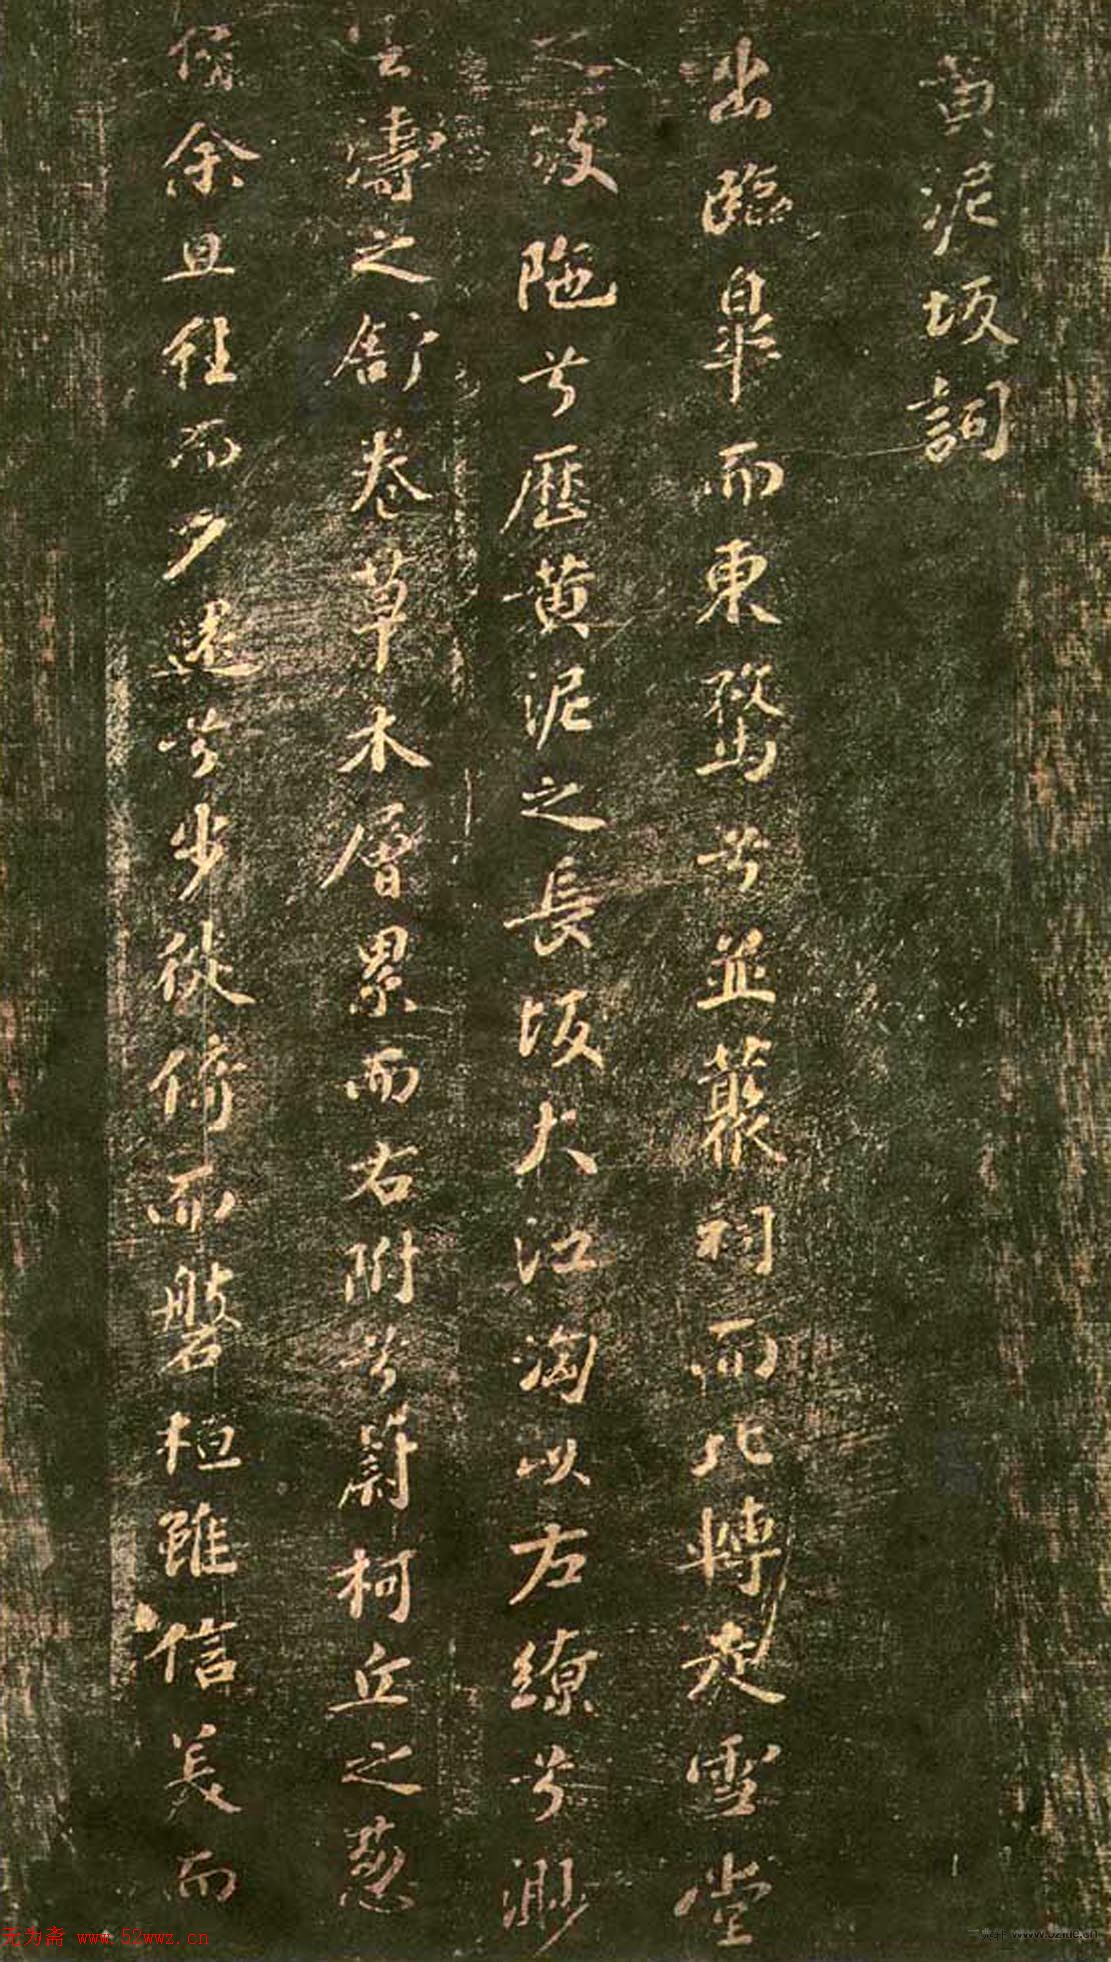 黃泥坂詞
出臨皐而東騖兮並藂祠而北轉走雪堂
之坡陁兮歷黃泥之長坂大江洶以左繚兮渺
雲濤之舒卷草木層累而右附兮蔚柯丘之葱
倩余旦往而夕還兮步徙倚而盤桓雖信美而
无为斋 www.52wwz.cn